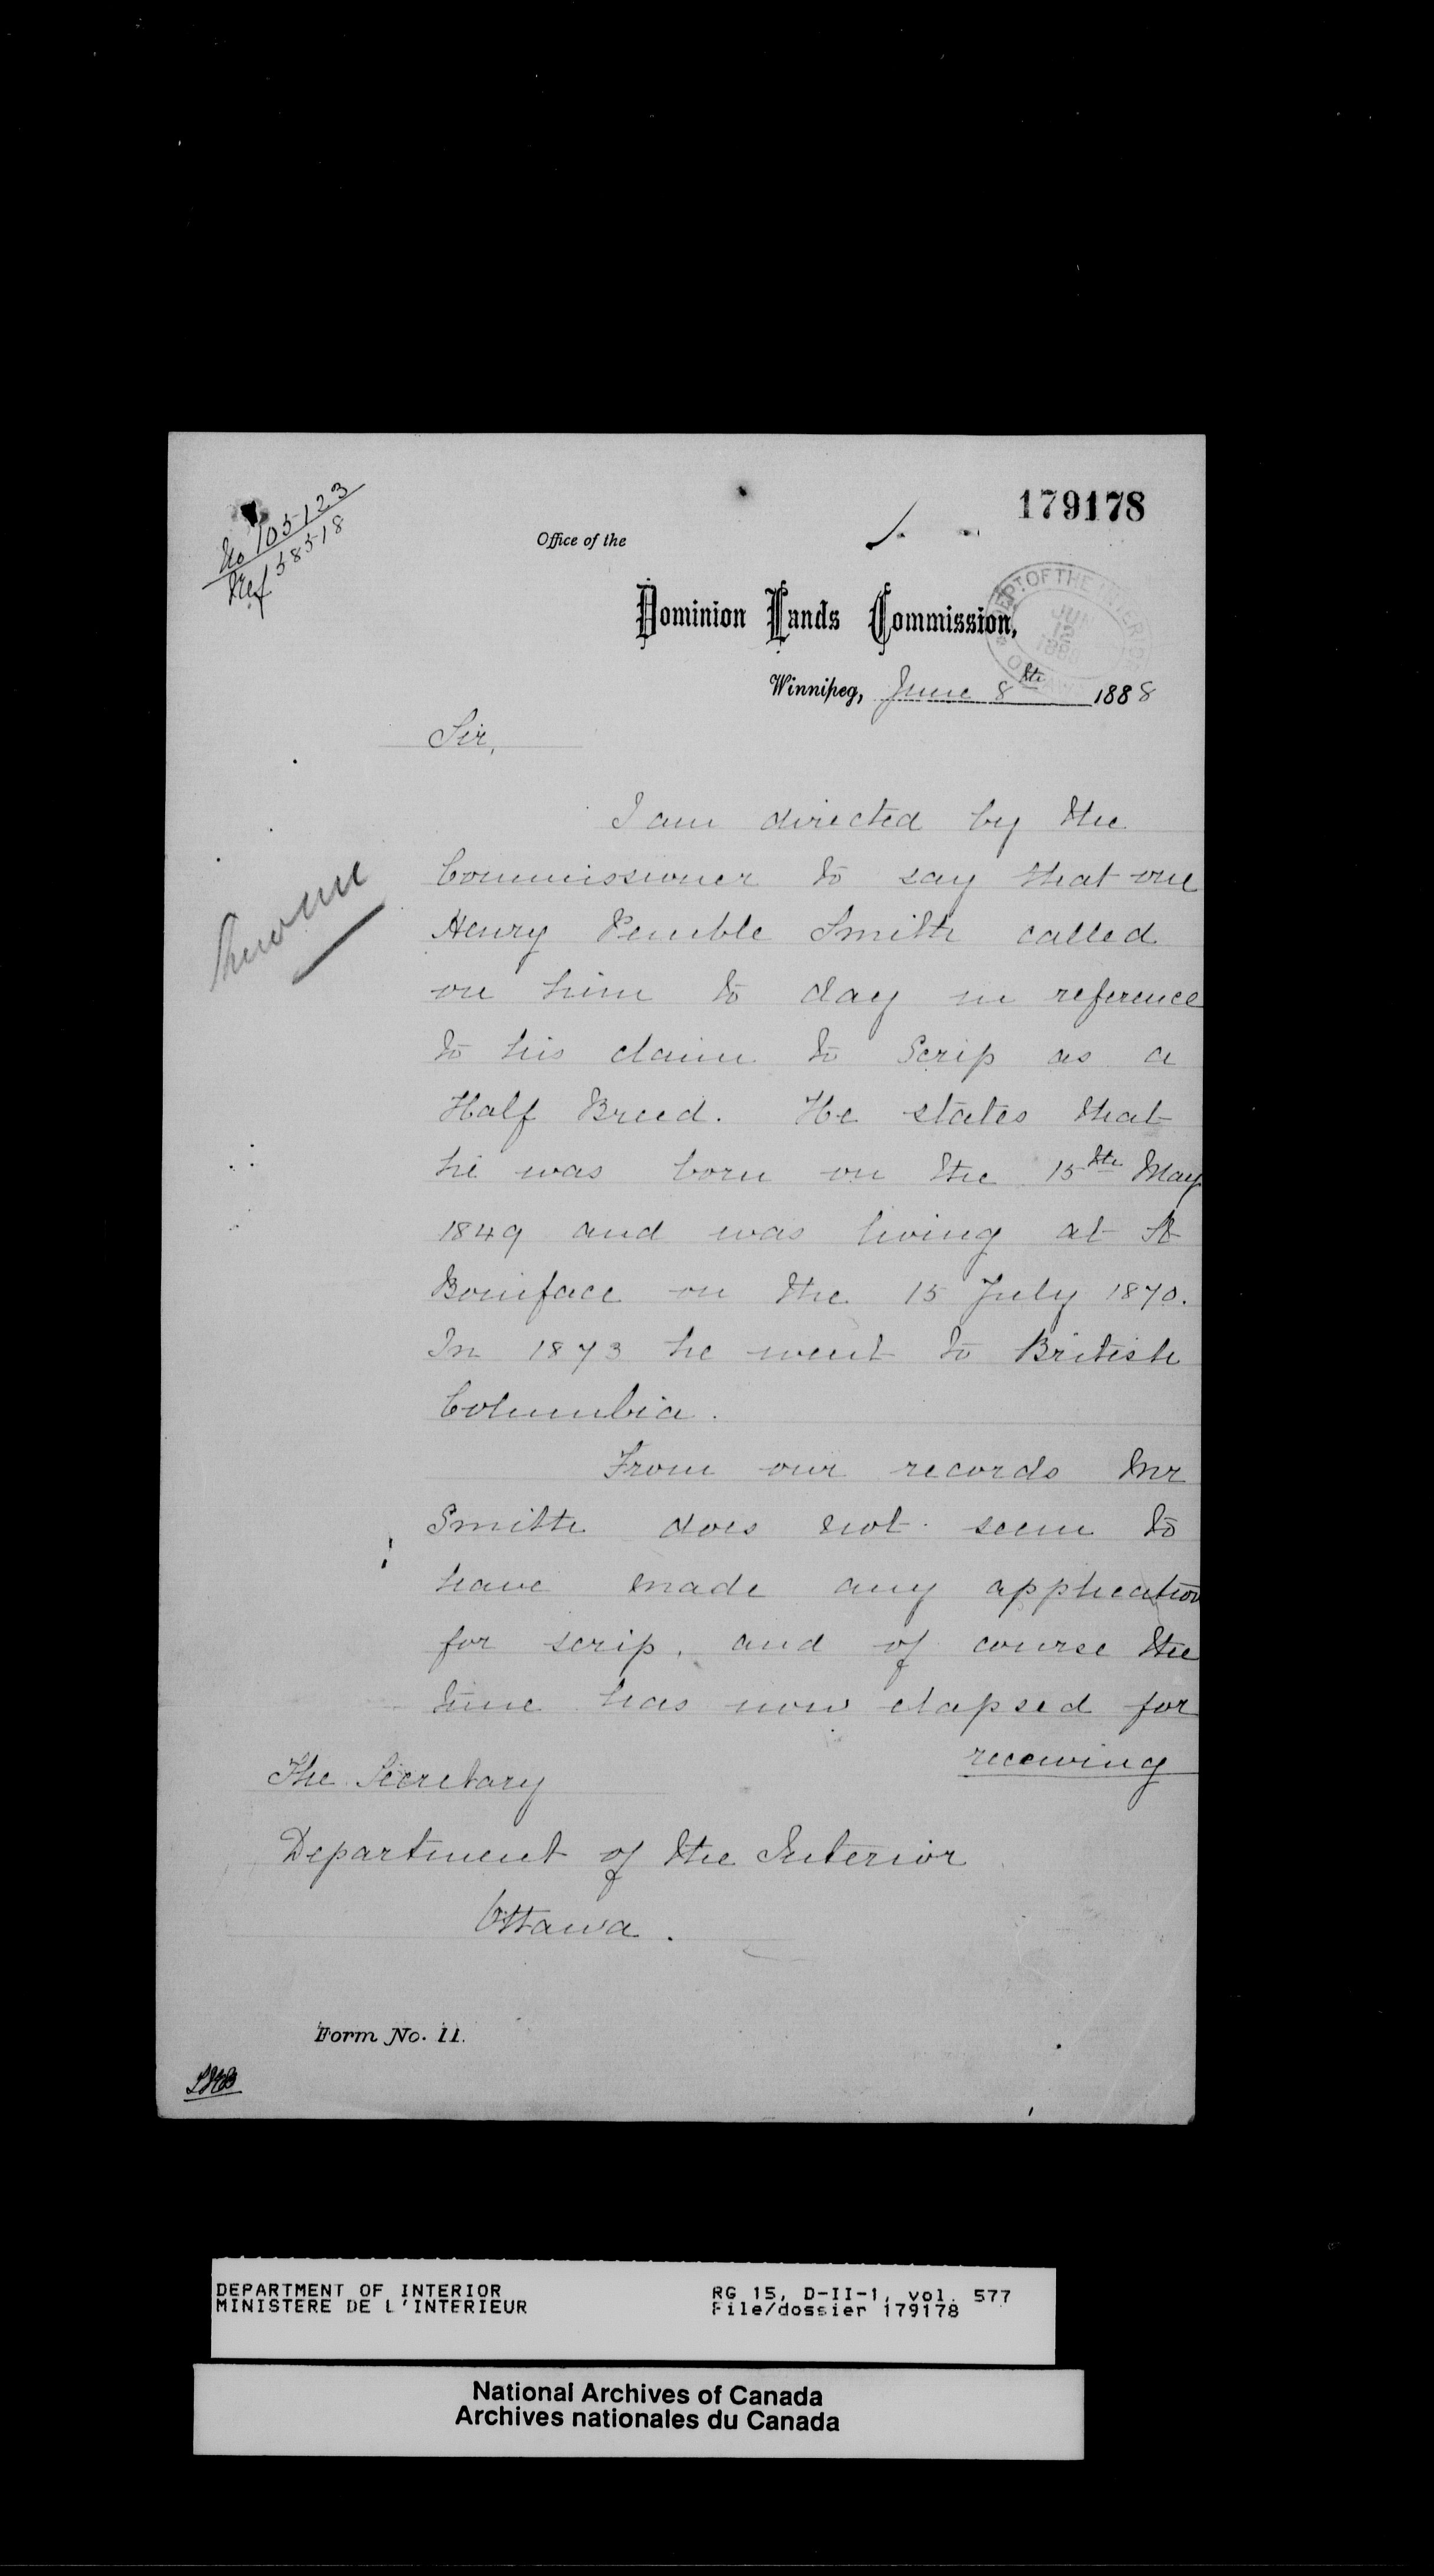 No 105123
Ref 58518
179178
Office of the
Dominion Lands Commission,
DEPT. OF THE INTERIOR
JUN
12
1888
OTTAWA
Winnipeg, June 8th 1888
Sir,
I am directed by the
Commissioner to say that one
Henry Pemble Smith called
on him to day in reference
to his claim to Scrip as a
Half Breed. He states that
he was born on the 15th May
1849 and was living at St
Boniface on the 15 July 1870.
In 1873 he went to British
Columbia.
From our records Mr
Smith does not seem to
have made any application
for scrip, and of course the
time has now elapsed for
receiving
The Secretary
Department of the Interior
Ottawa.
Form No. 11.
DEPARTMENT OF INTERIOR
MINISTERE DE L'INTERIEUR
RG 15, D-II-1, vol. 577
File/dossier 179178
National Archives of Canada
Archives nationales du Canada